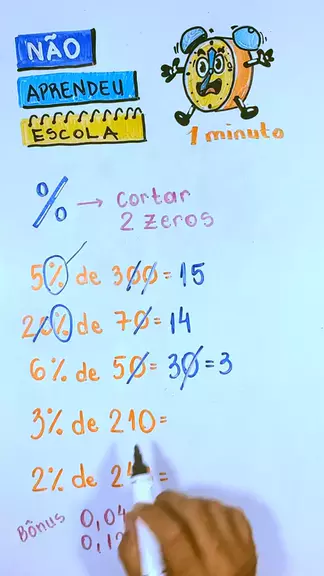 NÃO
APRENDEU
ESCOLA
1 minuto
% → cortar
2 zeros
5% de 300 = 15
20% de 70 = 14
6% de 50 = 30 = 3
3% de 210 =
2% de 2 =
Bônus 0,04
0,12